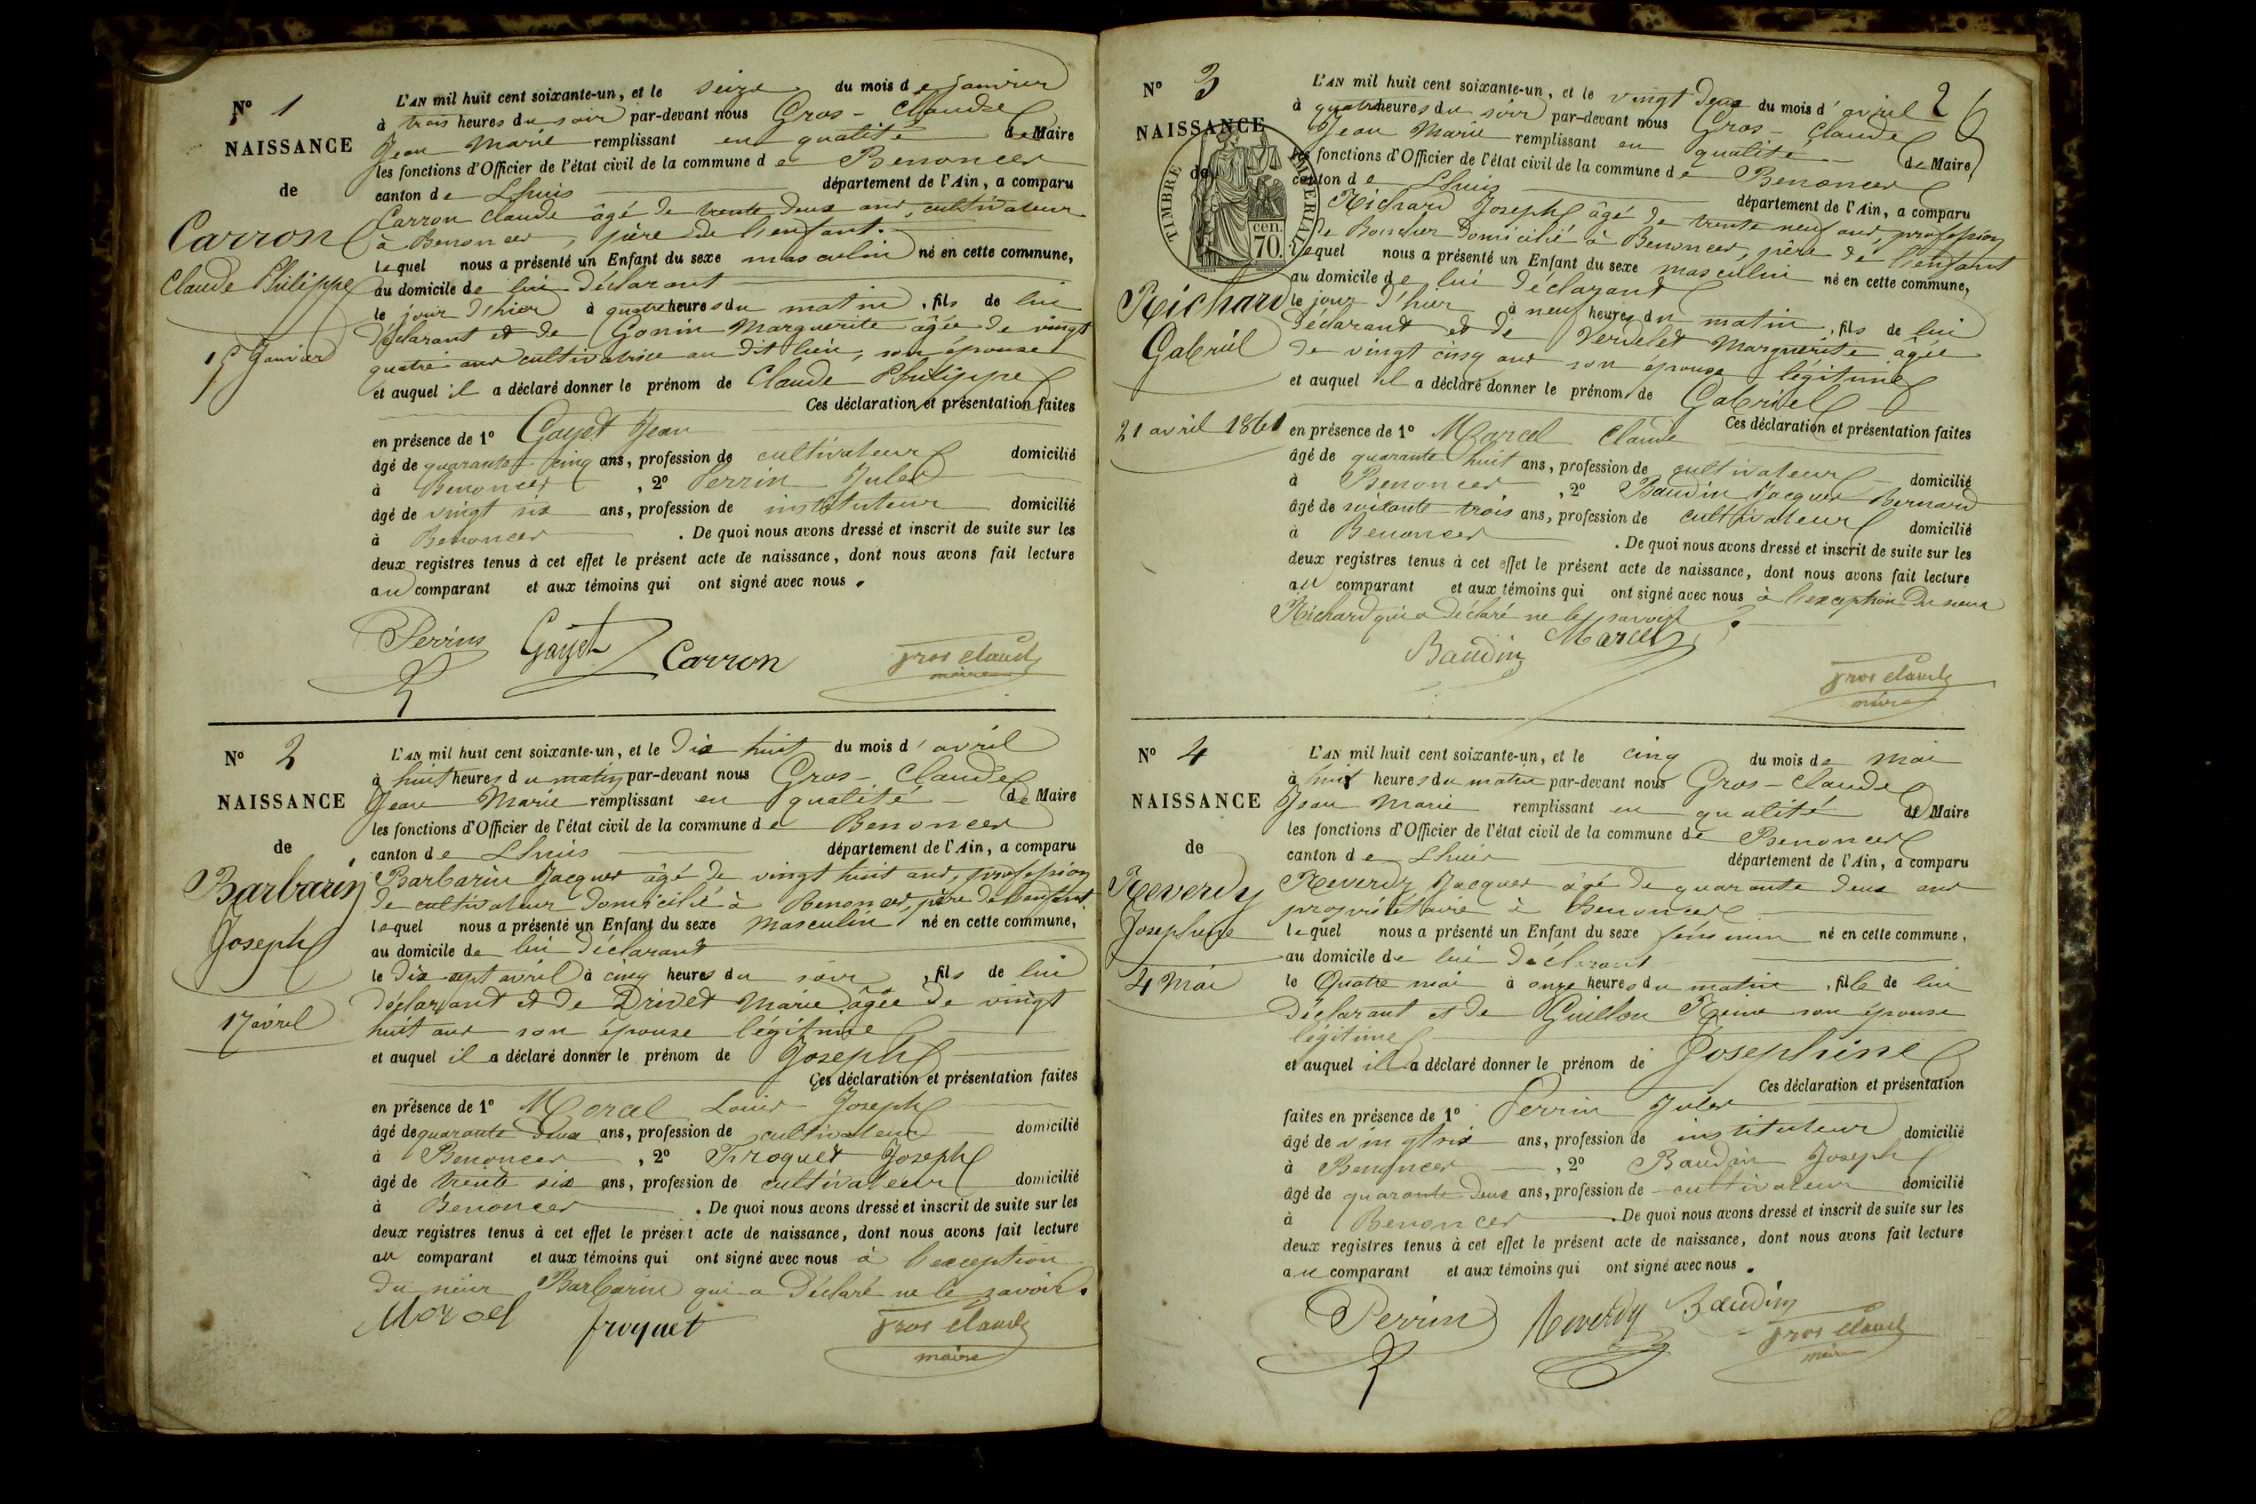 N° 1
NAISSANCE
de
Carron
Claude Philippe
15 Janvier
L'AN mil huit cent soixante-un, et le seize du mois de janvier
à trois heures du soir par-devant nous Gros-Claude
Jean Marie remplissant en qualité de Maire
les fonctions d'Officier de l'état civil de la commune de Benonces
canton de Lhuis département de l'Ain, a comparu
Carron Claude âgé de trente deux ans, cultivateur
à Benonces, père de l'enfant.
lequel nous a présenté un Enfant du sexe masculin né en cette commune,
au domicile de lui déclarant
le jour d'hier à quatre heures du matin, fils de lui
déclarant et de Gonin Marguerite âgée de vingt
quatre ans cultivatrice au dit lieu, son épouse
et auquel il a déclaré donner le prénom de Claude Philippe
Ces déclaration et présentation faites
en présence de 1° Gayet Jean
âgé de quarante cinq ans, profession de cultivateur domicilié
à Benonces, 2° Perrin Jules
âgé de vingt six ans, profession de instituteur domicilié
à Benonces. De quoi nous avons dressé et inscrit de suite sur les
deux registres tenus à cet effet le présent acte de naissance, dont nous avons fait lecture
au comparant et aux témoins qui ont signé avec nous.
Perrin Gayet Carron gros claude
maire
N° 2
NAISSANCE
de
Barbarin
Joseph
17 avril
L'AN mil huit cent soixante-un, et le dix huit du mois d'avril
à huit heures du matin par-devant nous Gros-Claude
Jean Marie remplissant en qualité de Maire
les fonctions d'Officier de l'état civil de la commune de Benonces
canton de Lhuis département de l'Ain, a comparu
Barbarin Jacques âgé de vingt huit ans, profession
de cultivateur domicilié à Benonces, père de l'enfant
lequel nous a présenté un Enfant du sexe masculin né en cette commune,
au domicile de lui déclarant
le dix sept avril à cinq heures du soir, fils de lui
déclarant et de Drivet Marie âgée de vingt
huit ans son épouse légitime
et auquel il a déclaré donner le prénom de Joseph
Ces déclaration et présentation faites
en présence de 1° Morcel Louis Joseph
âgé de quarante deux ans, profession de cultivateur domicilié
à Benonces, 2° Froquet Joseph
âgé de trente six ans, profession de cultivateur domicilié
à Benonces. De quoi nous avons dressé et inscrit de suite sur les
deux registres tenus à cet effet le présent acte de naissance, dont nous avons fait lecture
au comparant et aux témoins qui ont signé avec nous à l'exception
du sieur Barbarin qui a déclaré ne le savoir.
Morcel froquet gros claude
maire
2
N° 3
NAISSANCE
de
TIMBRE IMPERIAL
cen.
70.
Richard
Gabriel
21 avril 1861
L'AN mil huit cent soixante-un, et le vingt deux du mois d'avril
à quatre heures du soir par-devant nous Gros-Claude
Jean Marie remplissant en qualité de Maire
les fonctions d'Officier de l'état civil de la commune de Benonces
canton de Lhuis département de l'Ain, a comparu
Richard Joseph âgé de trente neuf ans, profession
de domicilié à Benonces, père de l'enfant
lequel nous a présenté un Enfant du sexe masculin né en cette commune,
au domicile de lui déclarant
le jour d'hier à neuf heures du matin, fils de lui
déclarant et de Verdelet Marguerite âgée
de vingt cinq ans son épouse légitime
et auquel il a déclaré donner le prénom de Gabriel
Ces déclaration et présentation faites
en présence de 1° Marcel Claude
âgé de quarante huit ans, profession de cultivateur domicilié
à Benonces, 2° Baudin Jacques Bernard
âgé de soixante trois ans, profession de cultivateur domicilié
à Benonces. De quoi nous avons dressé et inscrit de suite sur les
deux registres tenus à cet effet le présent acte de naissance, dont nous avons fait lecture
au comparant et aux témoins qui ont signé avec nous à l'exception du sieur
Richard qui a déclaré ne le savoir.
Baudin Marcel
gros claude
maire
N° 4
NAISSANCE
de
Reverdy
Josephine
4 mai
L'AN mil huit cent soixante-un, et le cinq du mois de mai
à huit heures du matin par-devant nous Gros-Claude
Jean Marie remplissant en qualité de Maire
les fonctions d'Officier de l'état civil de la commune de Benonces
canton de Lhuis département de l'Ain, a comparu
Reverdy Jacques âgé de quarante deux ans
propriétaire à Benonces
lequel nous a présenté un Enfant du sexe féminin né en cette commune,
au domicile de lui déclarant
le Quatre mai à onze heures du matin, fille de lui
déclarant et de Guillon Reine son épouse
légitime
et auquel il a déclaré donner le prénom de Josephine
Ces déclaration et présentation
faites en présence de 1° Perrin Jules
âgé de vingt six ans, profession de instituteur domicilié
à Benonces, 2° Baudin Joseph
âgé de quarante deux ans, profession de cultivateur domicilié
à Benonces. De quoi nous avons dressé et inscrit de suite sur les
deux registres tenus à cet effet le présent acte de naissance, dont nous avons fait lecture
au comparant et aux témoins qui ont signé avec nous.
Perrin Reverdy Baudin
gros claude
maire